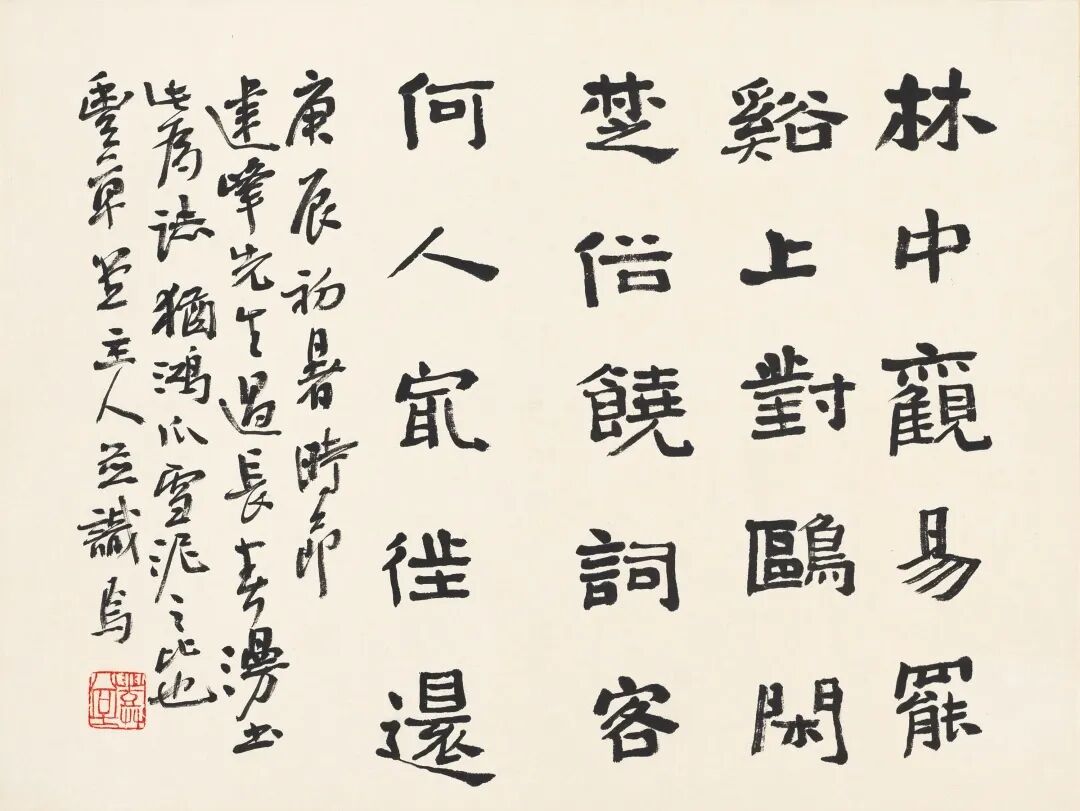 林中觀易罷
谿上對鷗閑
楚俗饒詞客
何人㝡徃還
庚辰初暑時節
建峰先生過長春漫书
此为誌猶鴻爪雪泥之比也
豐草堂主人並識焉